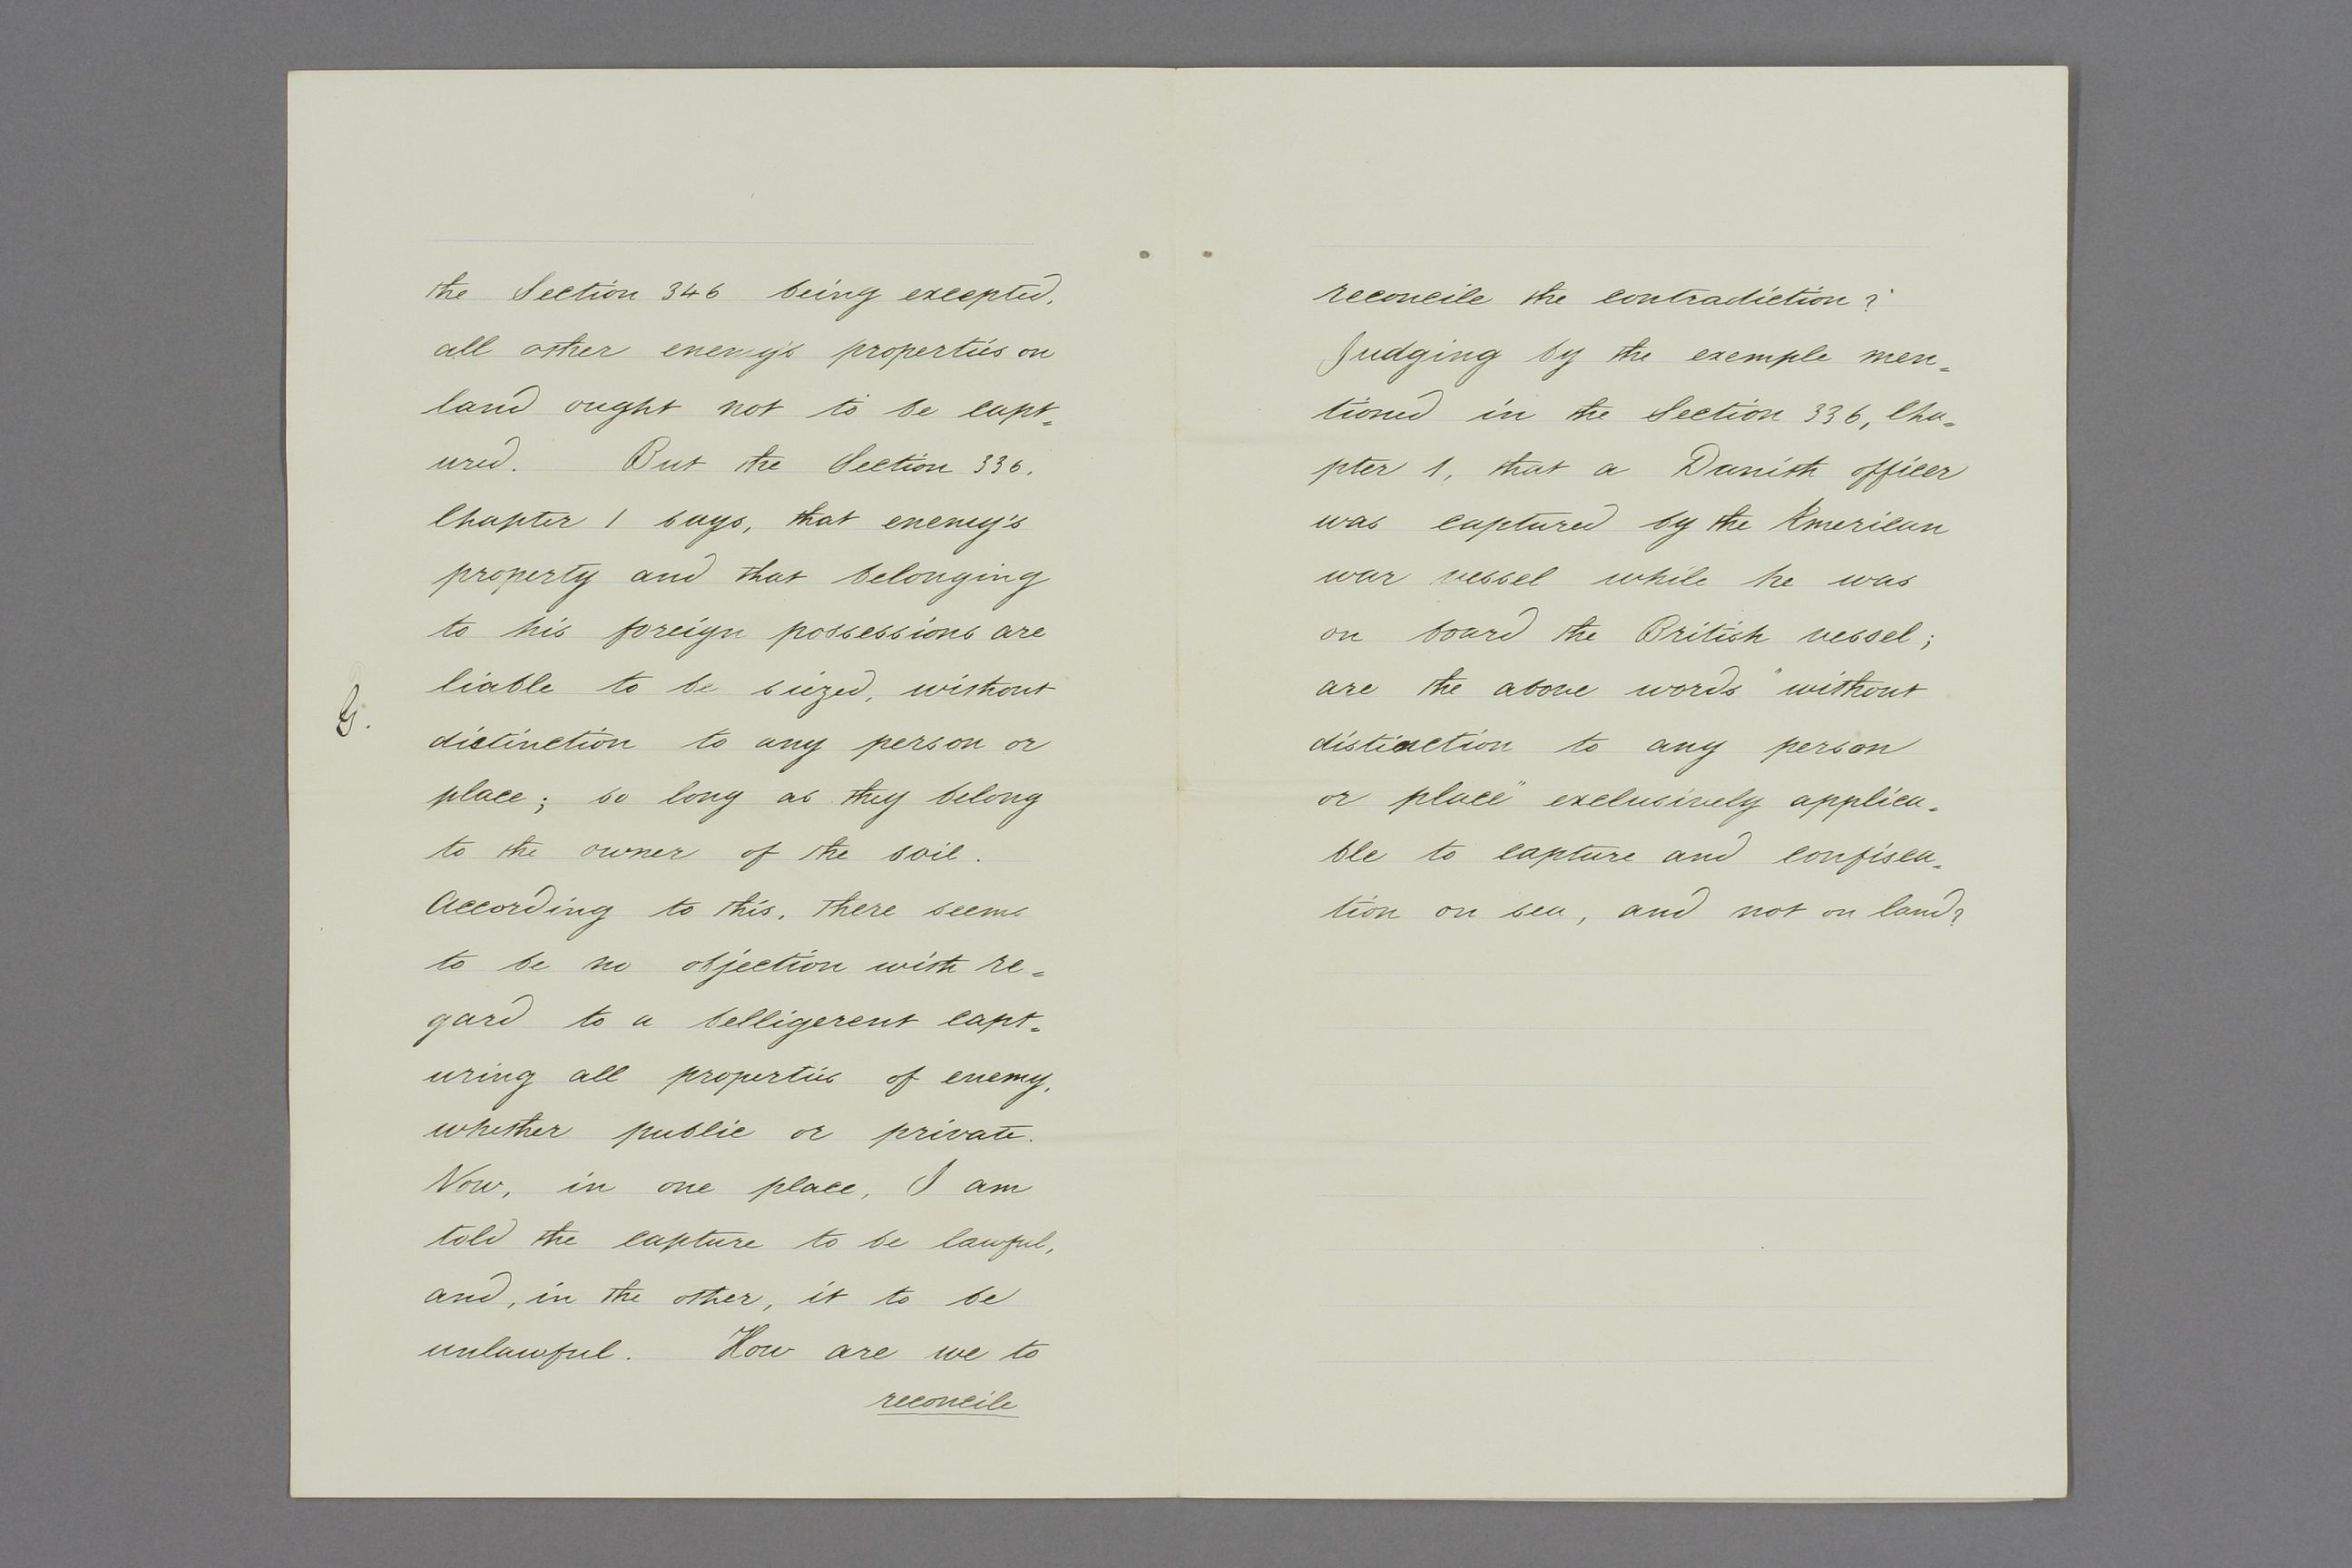 the Section 346 being excepted,
all other enemy's properties on
land ought not to be capt=
ured. But the Section 336,
Chapter 1 says, that enemy's
property and that belonging
to his foreign possessions are
liable to be siezed, without
G.
distinction to any person or
place; so long as they belong
to the owner of the soil.
According to this, there seems
to be no objection with re=
gard to a belligerent capt=
uring all properties of enemy,
whether public or private.
Now, in one place, I am
told the capture to be lawful,
and, in the other, it to be
unlawful. How are we to
reconcile
reconcile the contradiction?
Judging by the exemple men=
tioned in the Section 336, Cha=
pter 1, that a Danish officer
was captured by the American
war vessel while he was
on board the British vessel;
are the above words "without
distinction to any person
or place" exclusively applica=
ble to capture and confisca=
tion on sea, and not on land?